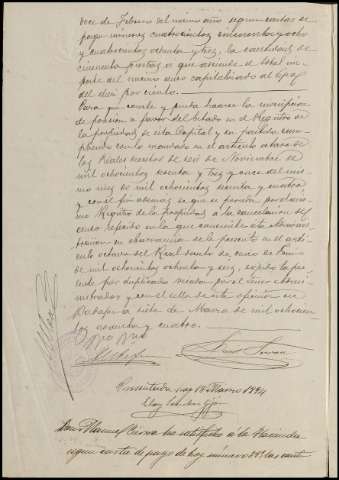 doce de Febrero del mismo año segun cartas de
pago números cuatrocientos cincuenta y ocho
y cuatrocientos ochenta y tres, la cantidad de
cincuenta pesetas a que asciende el total im-
porte del mismo censo capitalizado al tipo
del diez por ciento.
Para que conste y pueda hacerse la inscripcion
de posesion a favor del Estado en el Registro de
la propiedad de esta Capital y su partido, cum-
pliendo con lo mandado en el articulo octavo de
los Reales decretos de seis de Noviembre de
mil ochocientos sesenta y tres y once del mis-
mo mes de mil ochocientos sesenta y cuatro,
y con el fin ademas de que se
Registro de la propiedad a la cancelacion del
censo referido en la que
en observancia de lo prevenido en el arti-
culo octavo del Real decreto de
de mil ochocientos ochenta y seis, expido la pre-
sente por duplicado visada por el Señor Admi-
nistrador y con el sello de esta oficina en
Badajoz a siete de Marzo de mil ochocien-
tos noventa y cuatro.
Presentada hoy 18 Marzo 1894
Don Manuel ha satisfecho a la Hacienda
segun carta de pago de hoy número